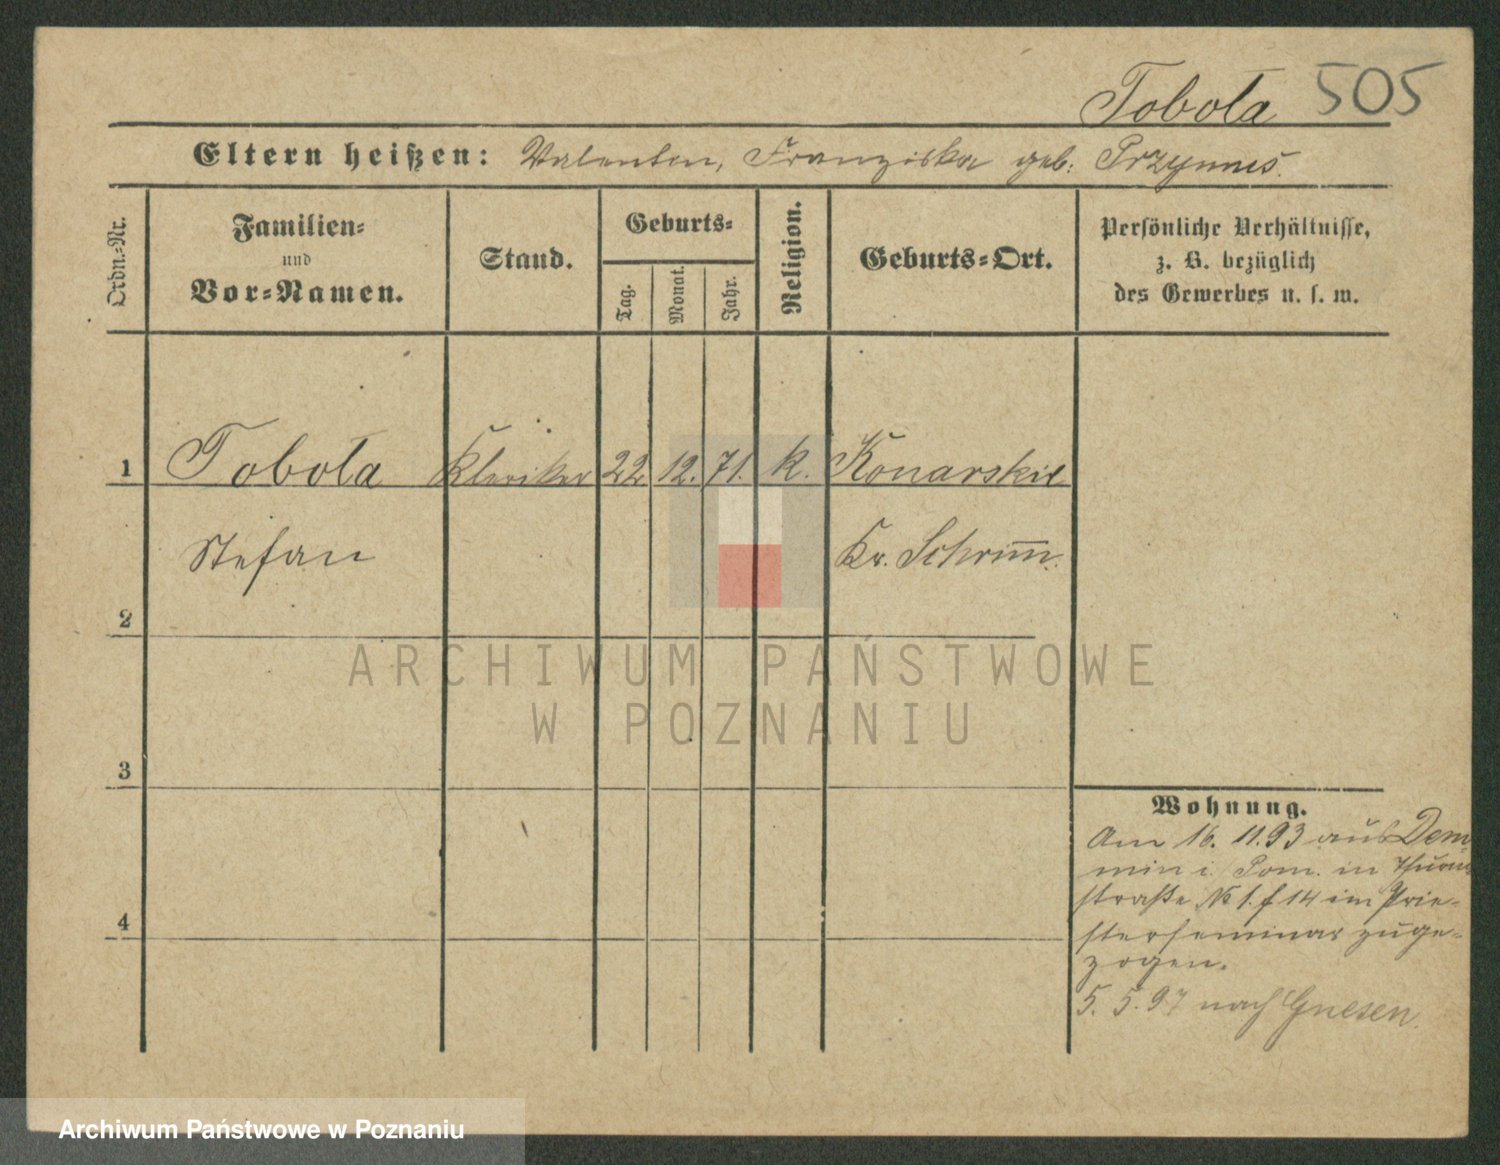 Tobola 505
Eltern heißen: Valentin, Franziska geb:
Ordn.=Nr.
Familien=
und
Vor=Namen.
Stand.
Geburts=
Tag.
Monat.
Jahr.
Religion.
Geburts=Ort.
Persönliche Verhältnisse,
z. B. bezüglich
des Gewerbes u. s. w.
1 Tobola Kleriker 22. 12. 71. k. Konarskie
Stefan Kr. Schrimm.
2
3
4
Wohnung.
Am 16. 11. 93 aus Dem-
min i. Pom. in Thurm
straße № 1. f 14 im Prie-
sterseminar zuge-
zogen.
5. 5. 97 nach Gnesen.
ARCHIWUM PAŃSTWOWE
W POZNANIU
Archiwum Państwowe w Poznaniu